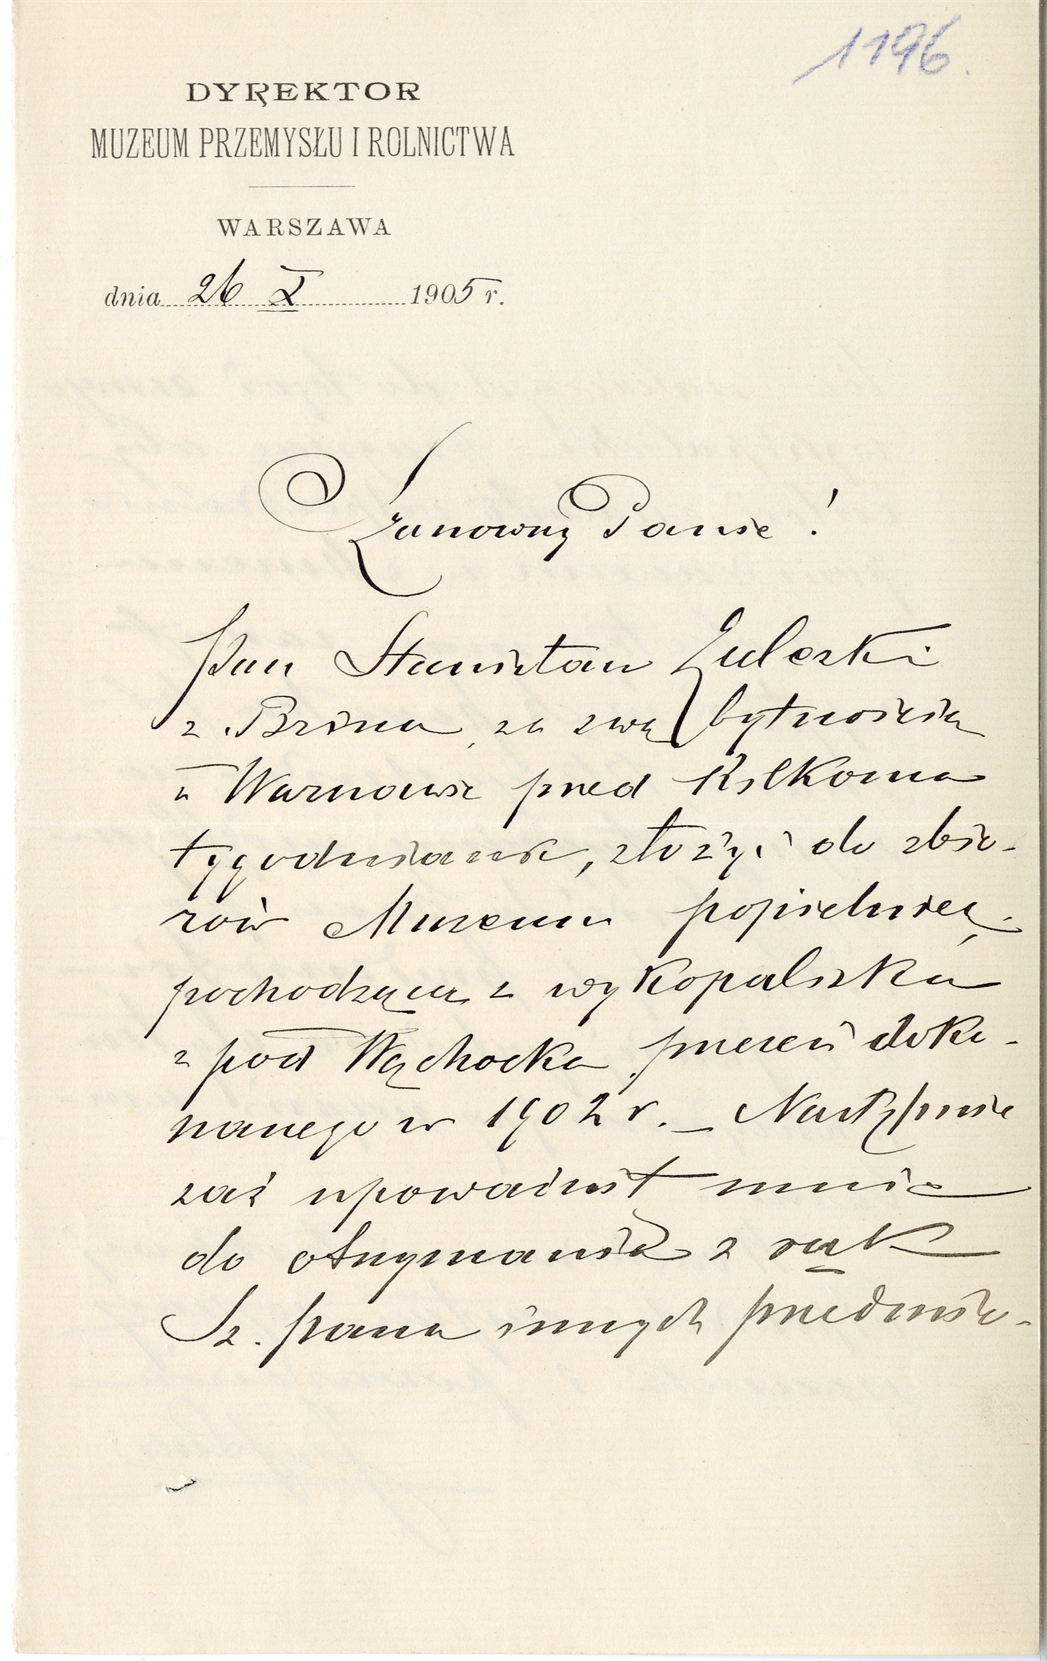 1196.
DYREKTOR
MUZEUM PRZEMYSŁU I ROLNICTWA
WARSZAWA
dnia 26 X 1905 r.
Szanowny Panie!
Pan Stanisław
z Brina, za swą bytnością
w Warszawie przed kilkoma
tygodniami, złożył do zbio-
rów Muzeum popielnicę
pochodzącą z wykopaliska
z pod Wąchocka, przezeń doko-
nanego w 1902 r. — Następnie
zaś upoważnił mnie
do otrzymania z rąk
Sz. Pana innych przedmio-